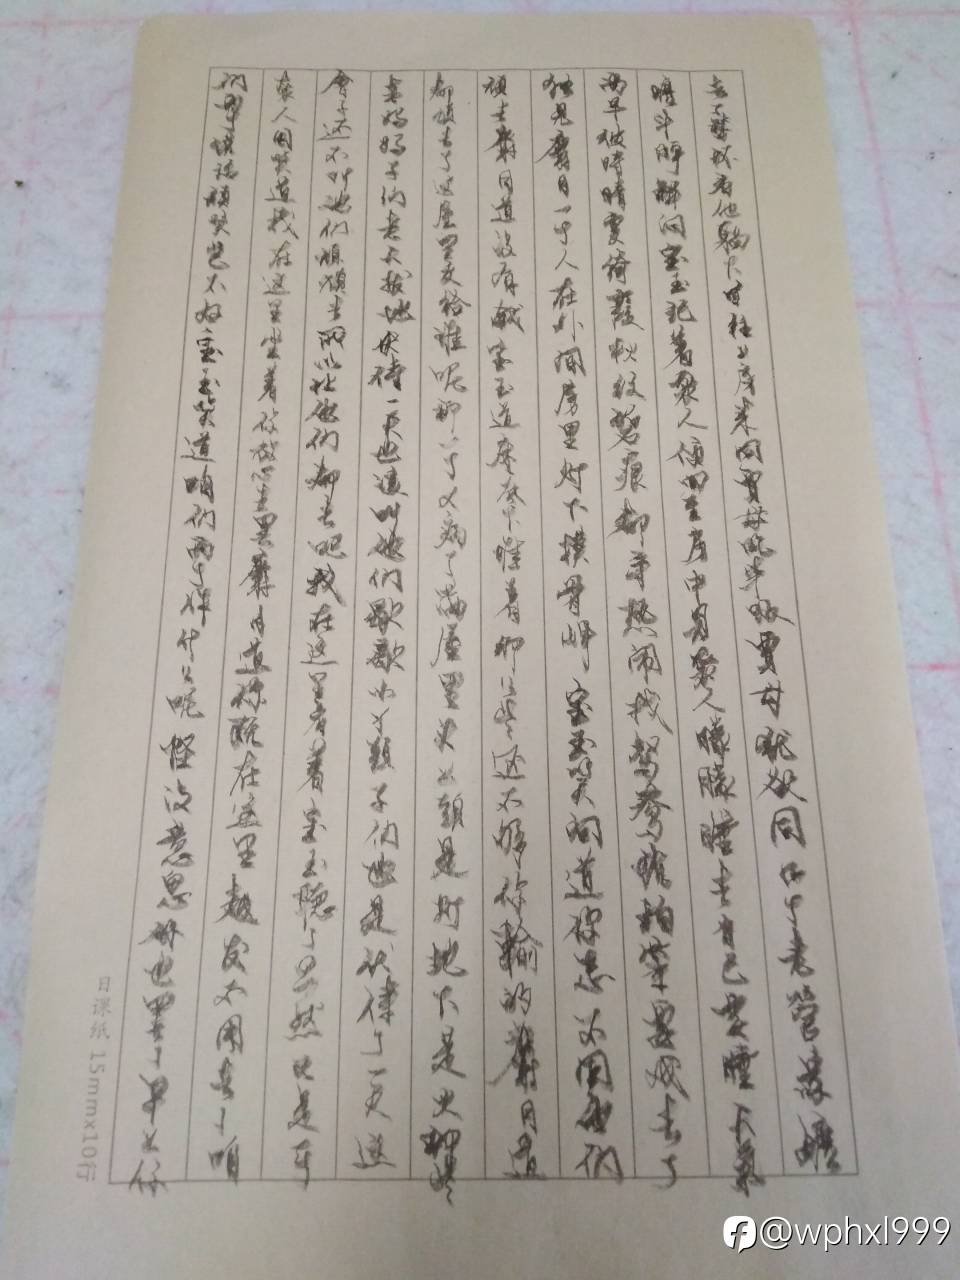 去了簪环看他躺下自往上房来同贾母吃毕饭贾母犹欲同几个老管家嬷
嬷斗牌解闷宝玉记着袭人便回至房中见袭人朦朦睡去自己要睡天气
尚早彼时晴雯绮霞秋纹碧痕都寻热闹找鸳鸯琥珀等耍戏去了
独见麝月一个人在外间房里灯下摸骨牌宝玉笑问道你怎不同他们
顽去麝月道没有钱宝玉道床底下堆着那些还不够你输的麝月道
都顽去了这屋里交给谁呢那一个又病了满屋里头上头是灯地下是火那些
老妈妈子们老天拔地伏侍一天也该叫他们歇歇小丫头子们也是伏侍了一天这
会子还不叫他们顽顽去所以让他们都去吧我在这里看着宝玉听了公然又是一个
袭人因笑道我在这里坐着你放心去罢麝月道你既在这里越发不用去了咱
们两个说话顽笑岂不好宝玉笑道咱们两个作什么呢怪没意思的也罢了早上你
日课纸 15mmx10行
@wphxl999